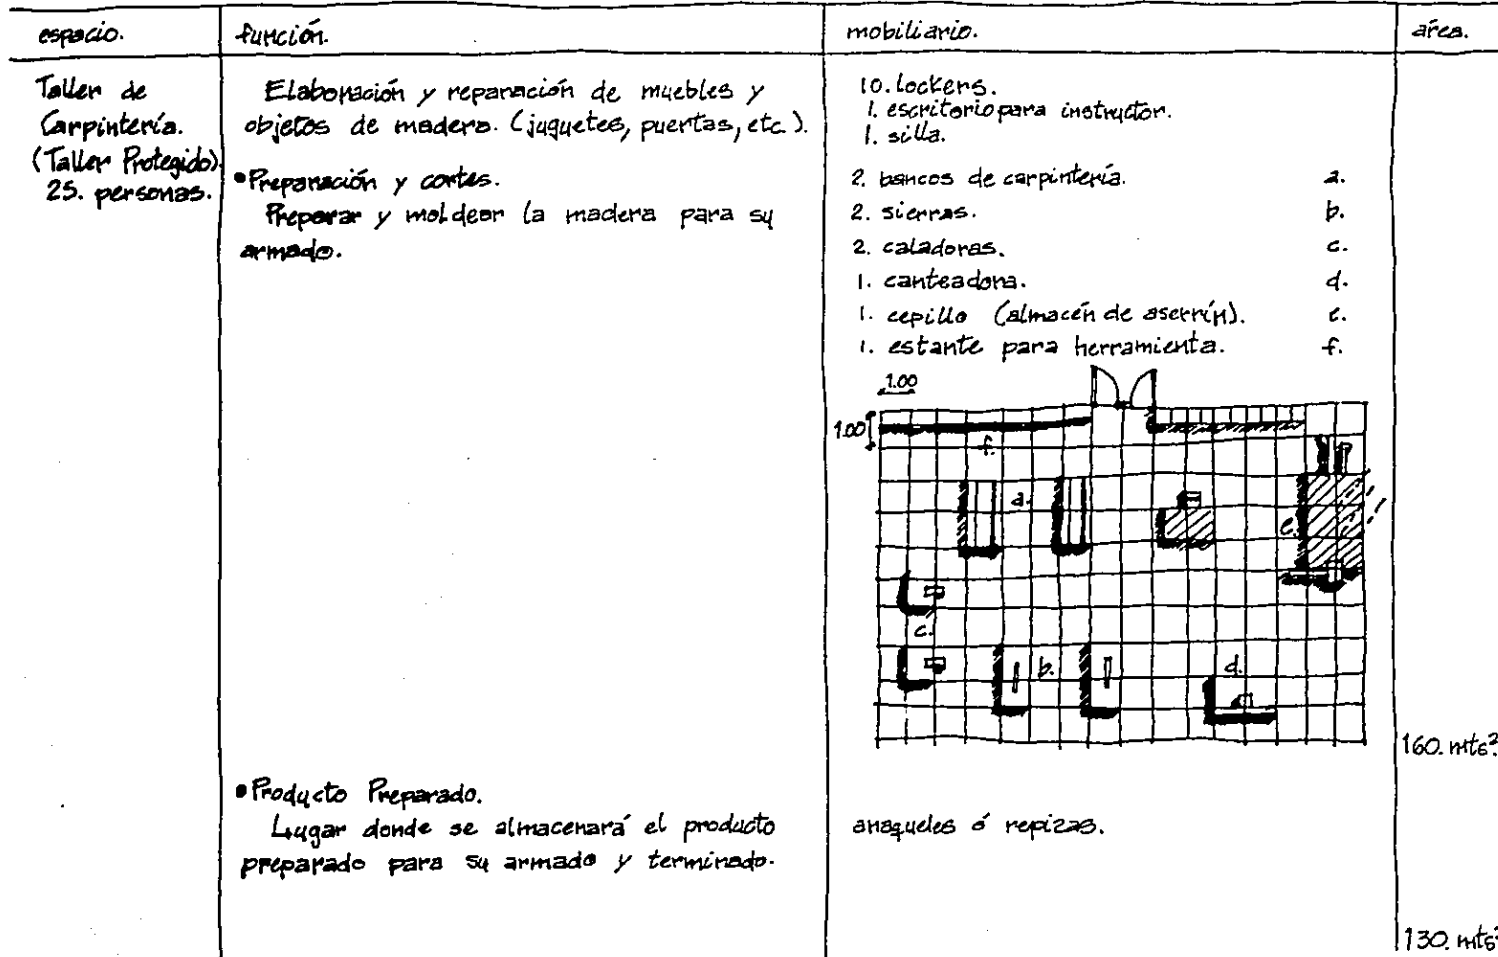 espacio.
función.
mobiliario.
área.
Taller de
Carpintería.
(Taller Protegido).
25. personas.
Elaboración y reparación de muebles y
objetos de madera. (juguetes, puertas, etc.).
•Preparación y cortes.
Preparar y moldear la madera para su
armado.
10. lockers.
1. escritorio para instructor.
1. silla.
2. bancos de carpintería. a.
2. sierras. b.
2. caladoras. c.
1. canteadora. d.
1. cepillo (almacén de aserrín). e.
1. estante para herramienta. f.
1.00
1.00
f.
a.
e.
c.
b.
d.
160. mts².
•Producto Preparado.
Lugar donde se almacenará el producto
preparado para su armado y terminado.
anaqueles ó repizas.
130. mts²